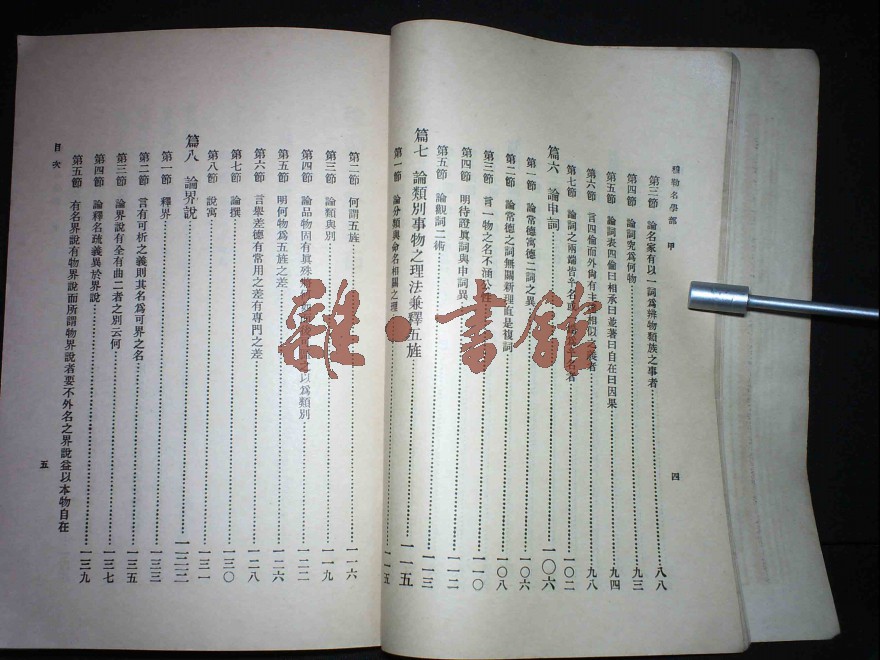 穆勒名學部 甲
第三節 論名家有以一詞爲辨物類族之事者 八八
第四節 論詞究爲何物 九三
第五節 論詞表四倫曰相承曰並著曰自在曰因果 九四
第六節 言四倫而外尙有主 相似之義者 九八
第七節 論詞之兩端皆 名 者 一〇二
篇六 論申詞 一〇六
第一節 論常德寓德二詞之異 一〇六
第二節 論常德之詞無關新理直是複詞 一〇八
第三節 言一物之名不涵公性 一一〇
第四節 明待證眞詞與申詞異 一一二
第五節 論觀詞二術 一一三
篇七 論類別事物之理法兼釋五旌 一一五
第一節 論分類與命名相關之理 一一五
四
第二節 何謂五旌 一一六
第三節 論類與別 一一九
第四節 論品物固有眞殊 之以爲類別 一二二
第五節 明何物爲五旌之差 一二六
第六節 言畢差德有常用之差有專門之差 一二八
第七節 論撰 一三〇
第八節 說寓 一三一
篇八 論界說 一三二
第一節 釋界 一三三
第二節 言有可析之義則其名爲可界之名 一三三
第三節 論界說有全有曲二者之別云何 一三五
第四節 論釋名疏義異於界說 一三七
第五節 有名界說有物界說而所謂物界說者要不外名之界說益以本物自在 一三九
目次
五
雜·書館